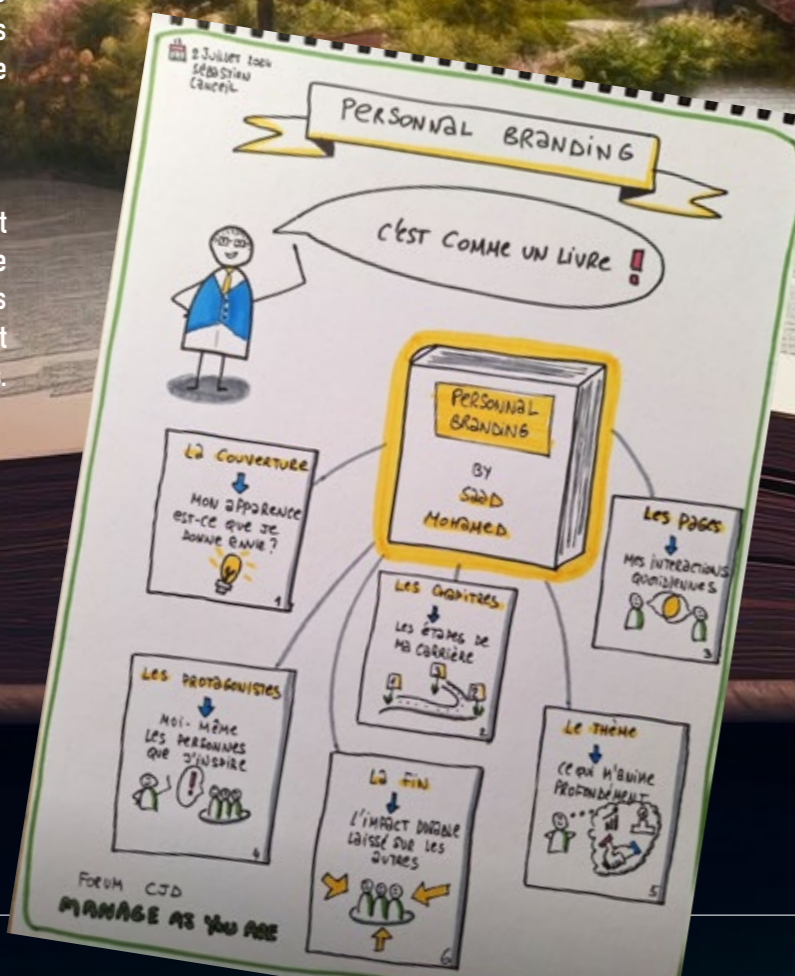 2 JUILLET 2024
SÉBASTIEN
CANCEIL
PERSONNAL BRANDING
C'EST COMME UN LIVRE !
PERSONNAL
BRANDING
BY
SAAD
MOHAMED
LA COUVERTURE
MON APPARENCE
EST-CE QUE JE
DONNE ENVIE ?
1
LES CHAPITRES
LES ÉTAPES DE
MA CARRIÈRE
1
3
2
2
LES PAGES
MES INTERACTIONS
QUOTIDIENNES
3
LES PROTAGONISTES
MOI-MÊME
LES PERSONNES
QUE J'INSPIRE
!
4
LE THÈME
CE QUI M'ANIME
PROFONDÉMENT
5
LA FIN
L'IMPACT DURABLE
LAISSÉ SUR LES
AUTRES
6
FORUM CJD
MANAGE AS YOU ARE